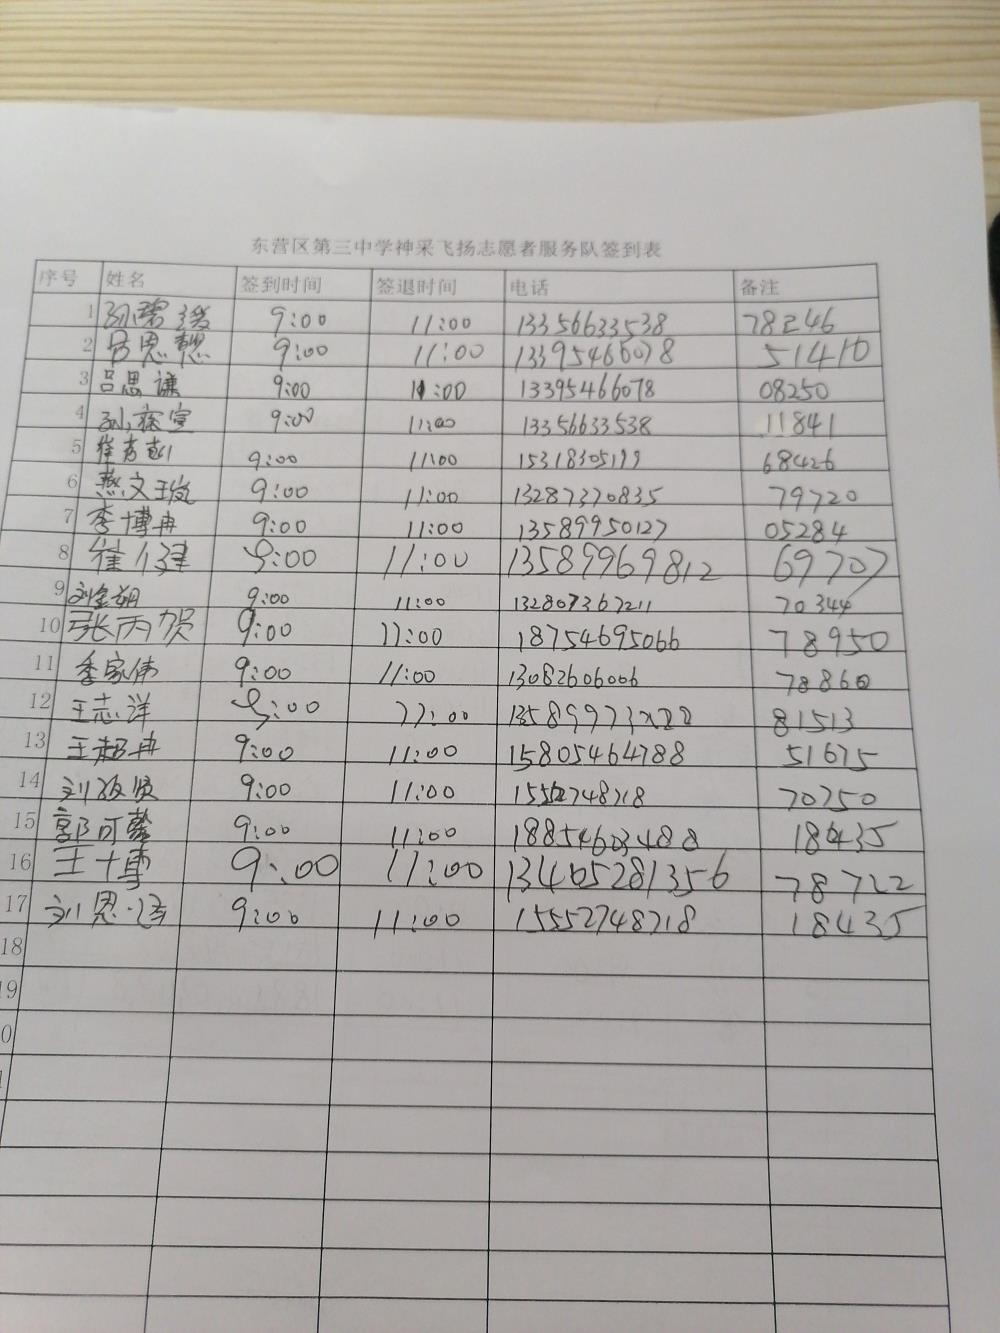 东营区第三中学神采飞扬志愿者服务队签到表
序号 姓名 签到时间 签退时间 电话 备注
1 9:00 11:00 13356633538 78246
2 吕思想 9:00 11:00 13395466078 51410
3 吕思谦 9:00 11:00 13395466078 08250
4 9:00 11:00 13356633538 11841
5 9:00 11:00 15318305199 68426
6 燕文珑 9:00 11:00 13287370835 79720
7 李博冉 9:00 11:00 13589950127 05284
8 崔健 9:00 11:00 13589969812 69707
9 刘金朔 9:00 11:00 132807367211 70344
10 张丙贺 9:00 11:00 18754695066 78950
11 季家伟 9:00 11:00 13082606006 78860
12 王志洋 9:00 11:00 81513
13 王超冉 9:00 11:00 15805464788 51675
14 9:00 11:00 15552748718 70750
15 郭可馨 9:00 11:00 18854603488 18435
16 王博 9:00 11:00 13405281356 78722
17 刘恩泽 9:00 11:00 15552748718 18435
18
19
0